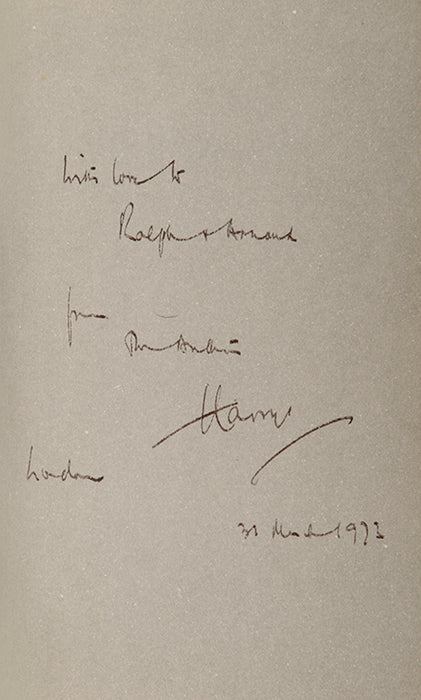 With love to
Ralph + Armand
from
The Author
Harry
London
31 March 1973